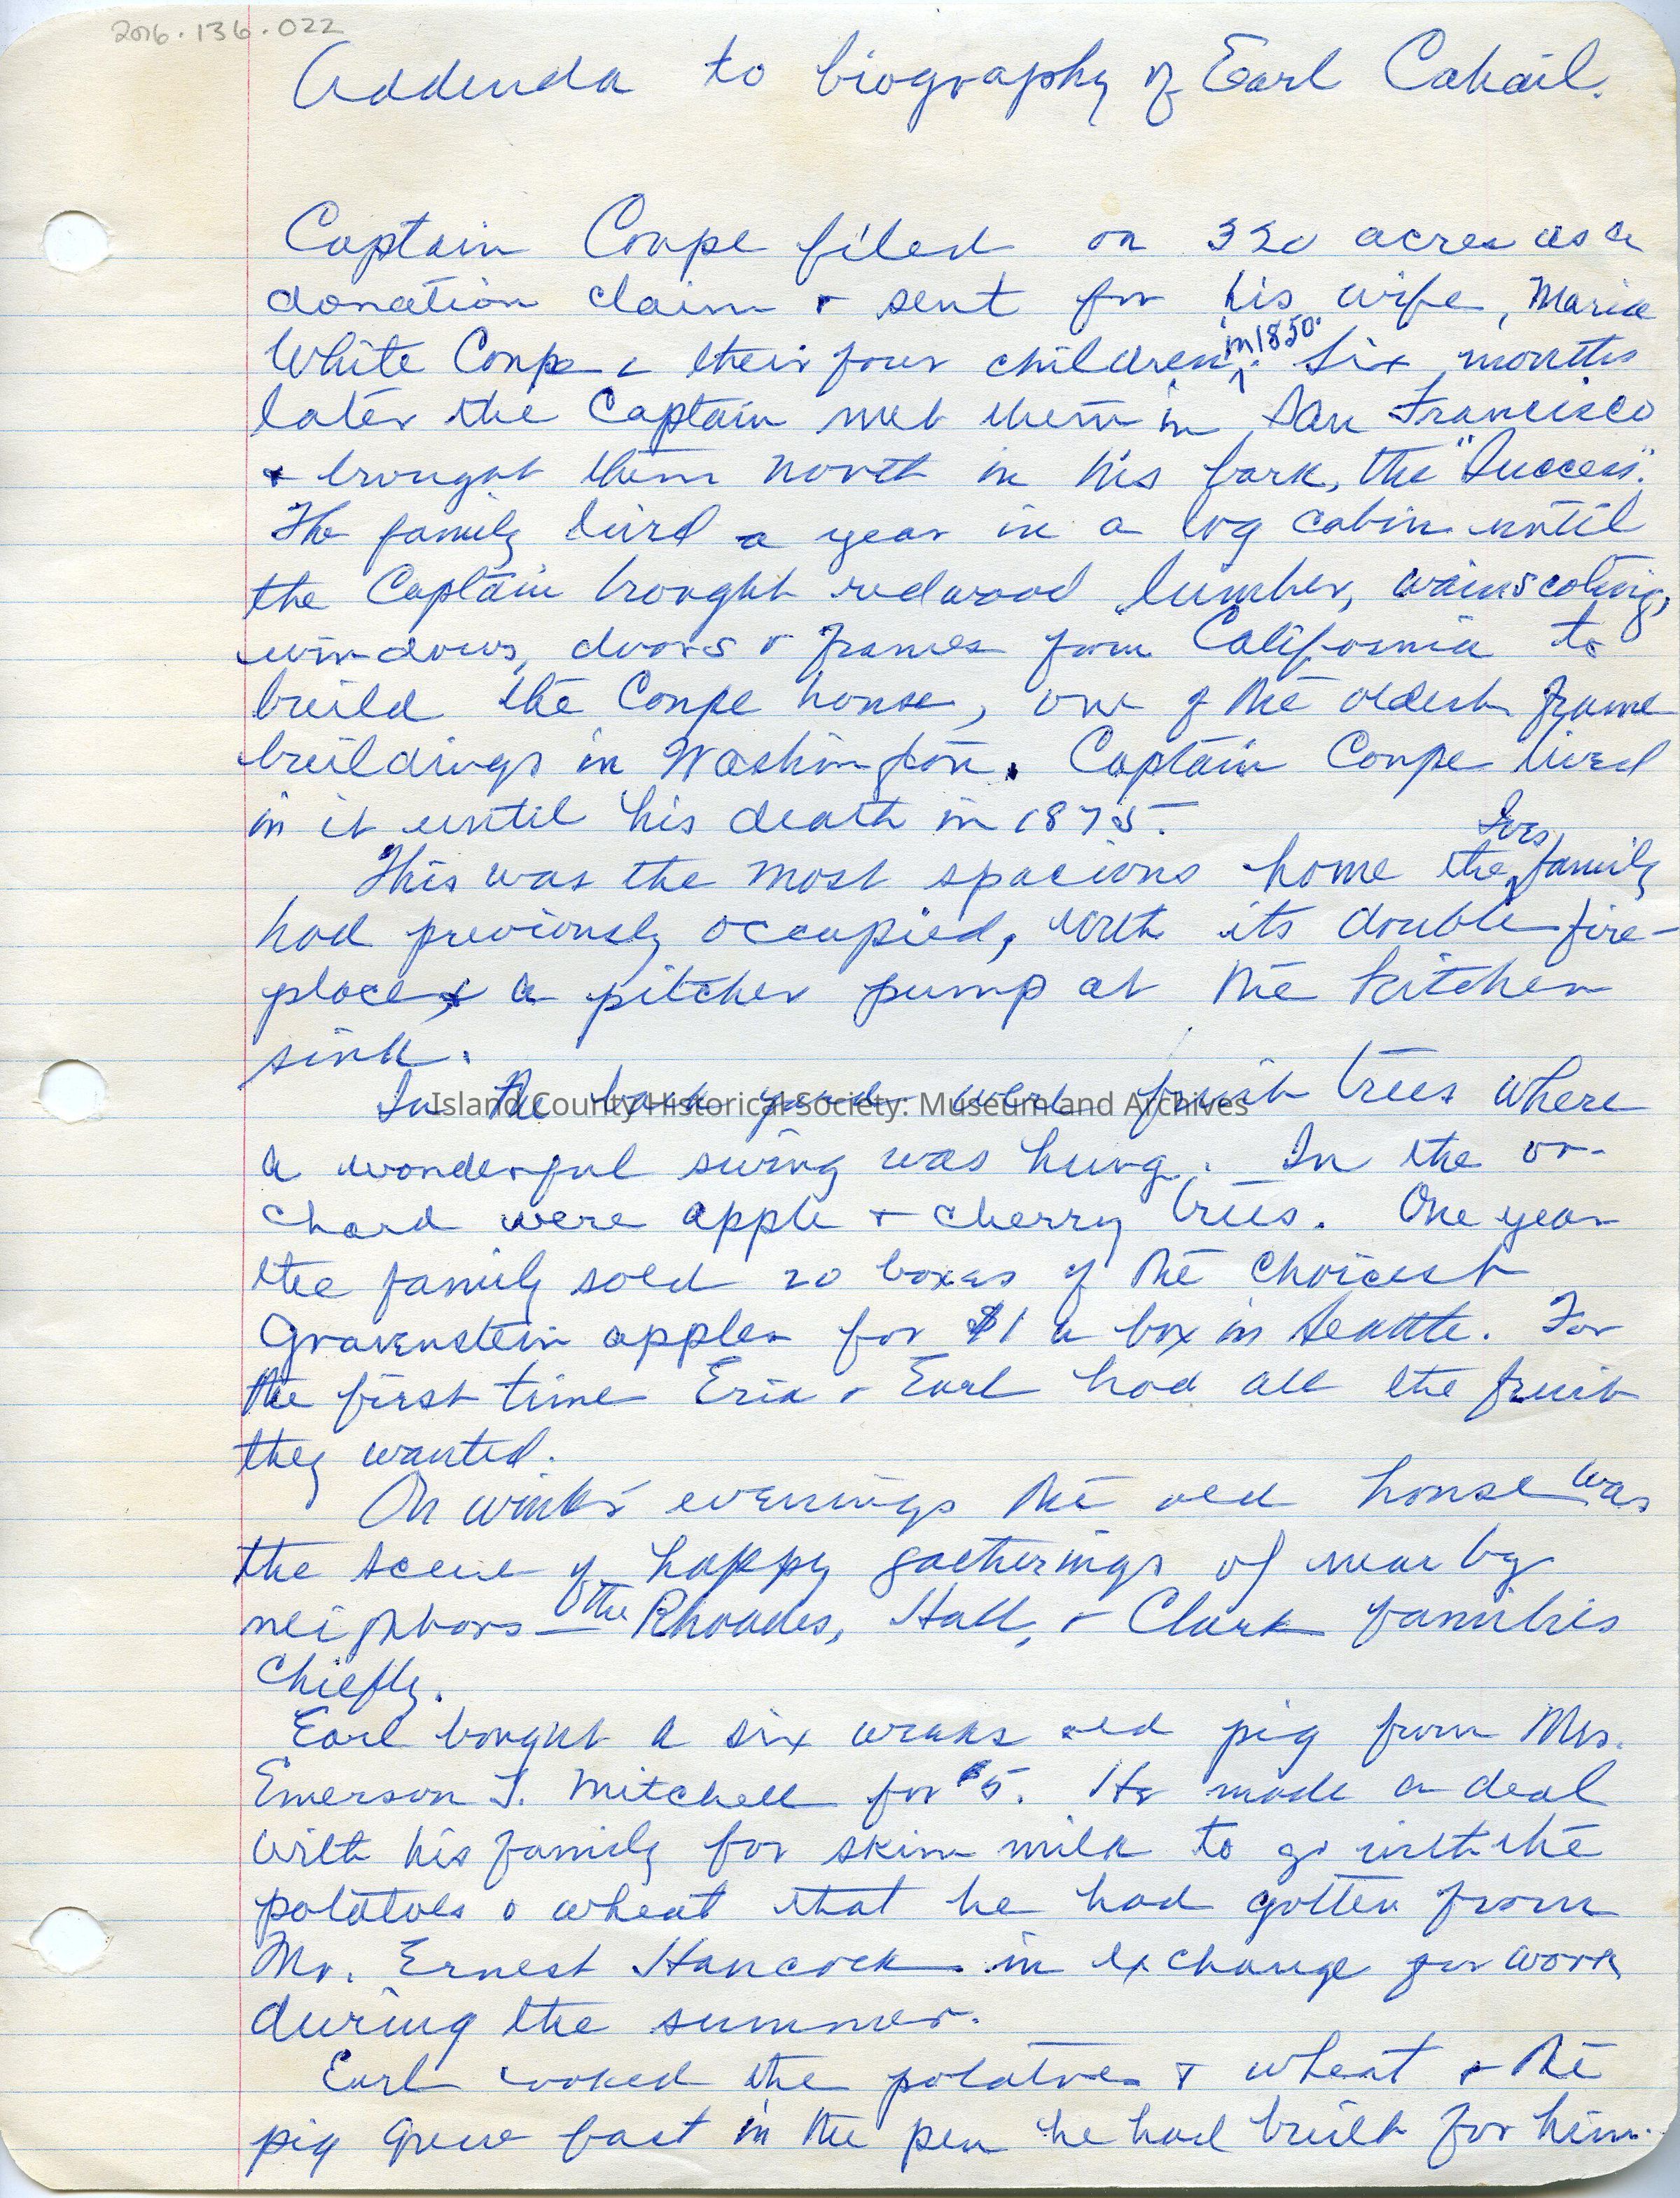 2016.136.022
Addenda to biography of Earl Cahail.
Captain Coupe filed on 320 acres as a
donation claim & sent for his wife, Maria
White Coupe & their four children in 1850. Six months
later the Captain met them in San Francisco
& brought them north in his bark, the "Success".
The family lived a year in a log cabin until
the Captain brought redwood lumber, wainscoting,
windows, doors & frames from California to
build the Coupe house, one of the oldest frame
buildings in Washington. Captain Coupe lived
in it until his death in 1875.
This was the most spacious home the Ives family
had previously occupied, with its double fire-
place & a pitcher pump at the kitchen
sink.
In the back yard were fruit trees where
Island County Historical Society: Museum and Archives
a wonderful swing was hung. In the or-
chard were apple & cherry trees. One year
the family sold 20 boxes of the choicest
Gravenstein apples for $1 a box in Seattle. For
the first time Eria & Earl had all the fruit
they wanted.
On winter evenings the old house was
the scene of happy gatherings of near by
neighbors — the Rhoades, Hall, & Clark families
chiefly.
Earl bought a six weeks old pig from Mrs.
Emerson J. Mitchell for $5. He made a deal
with his family for skim milk to go with the
potatoes & wheat that he had gotten from
Mr. Ernest Hancock in exchange for work
during the summer.
Earl cooked the potatoes & wheat & the
pig grew fast in the pen he had built for him.